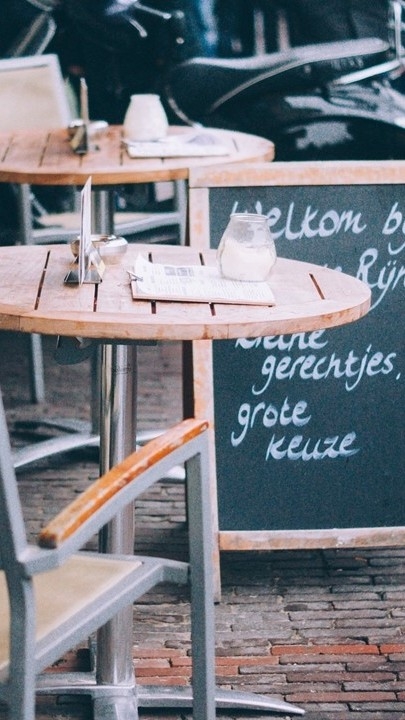 Welkom b
Rijn
kleine
gerechtjes,
grote
keuze